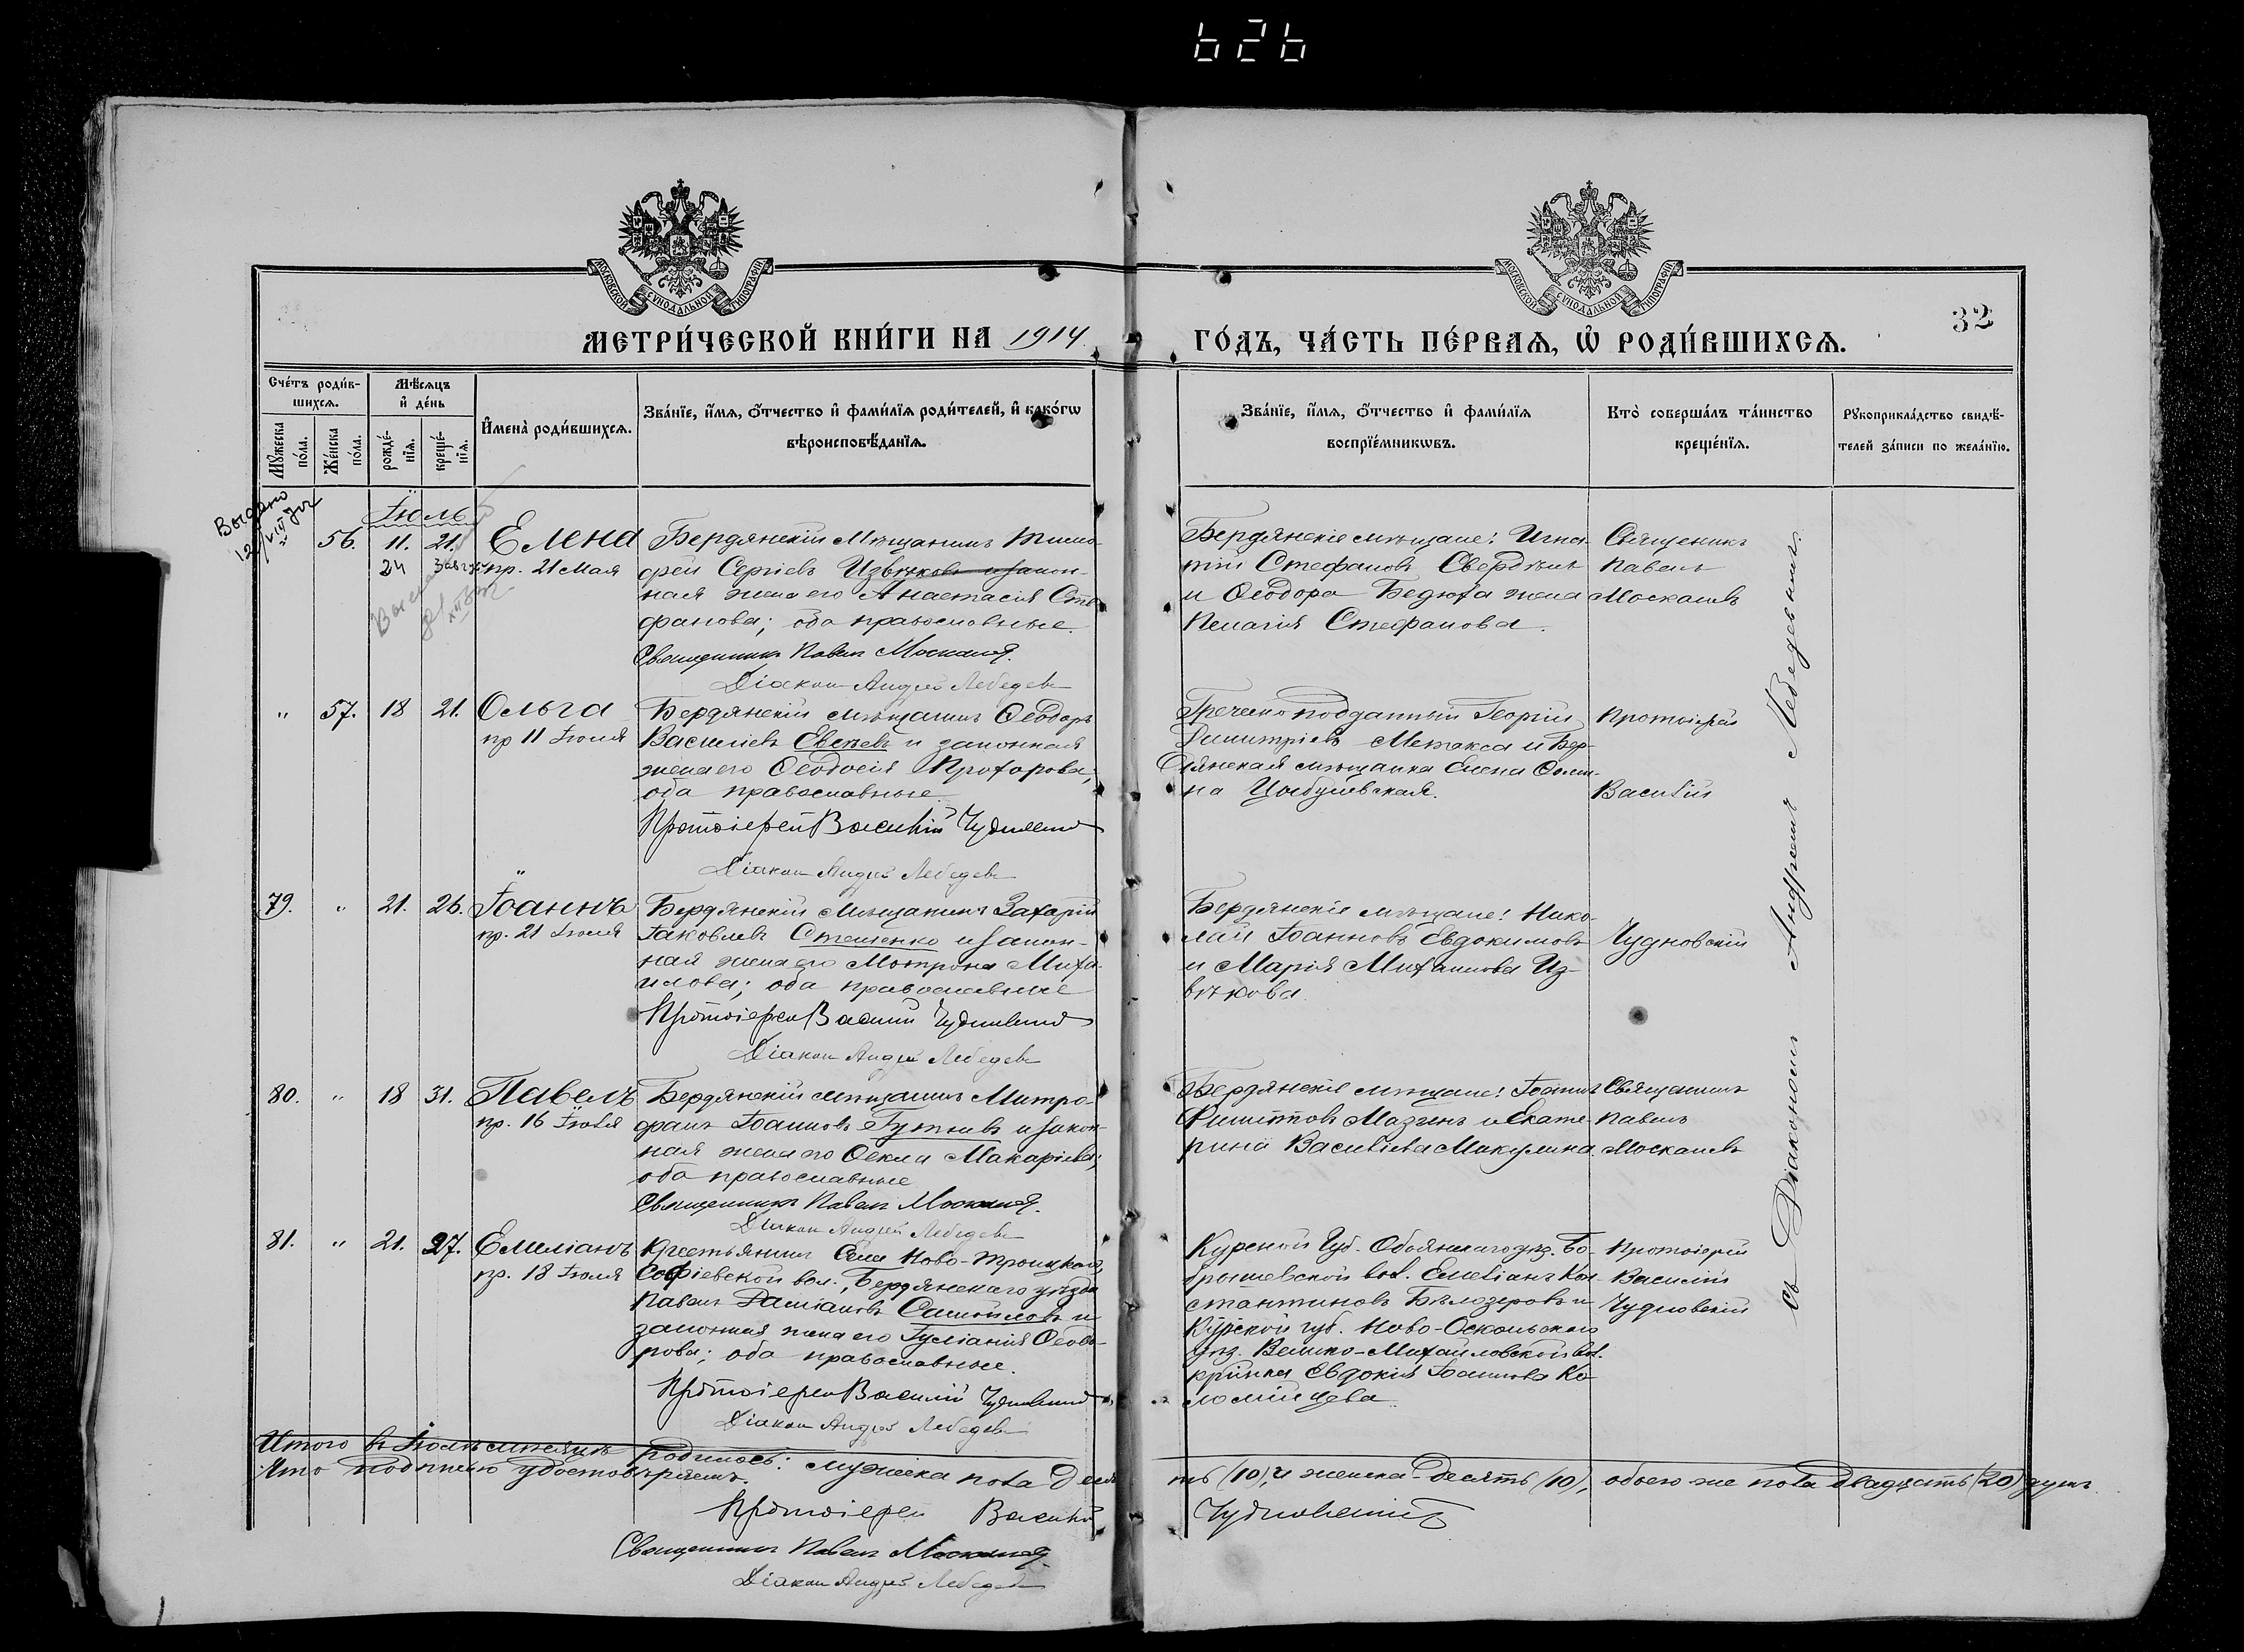 626
МОСКОВСКОЙ СѴНОДАЛЬНОЙ ТИПОГРАФІИ
МОСКОВСКОЙ СѴНОДАЛЬНОЙ ТИПОГРАФІИ
32
МЕТРИ́ЧЕСКОЙ КНИ́ГИ НА 1914 ГО́ДЪ, ЧА́СТЬ ПЕ́РВАѦ, Ѡ҆ РОДИ́ВШИХСѦ.
Сче́тъ роди́в-
шихсѧ.
Мꙋ́жеска по́ла.
Же́нска по́ла.
Мѣ́сѧцъ
и҆ де́нь
рожде́-
нїѧ.
креще́-
нїѧ.
И҆мена̀ роди́вшихсѧ.
Зва́нїе, и҆́мѧ, ѻ҆́тчество и҆ фамн́лїѧ роди́телей, и҆ како́гѡ
вѣроисповѣ́данїѧ.
Зва́нїе, и҆́мѧ, ѻ҆́тчество и҆ фами́лїѧ
воспрїе́мникѡвъ.
Кто̀ соверша́лъ та́инство
креще́нїѧ.
Рꙋкоприкла́дство свидѣ́-
телей за́писи по жела́нїю.
Выдано
Іюль
" 56. 11. 21. Елена
24 3 авг. пр. 21 Мая
Бердянскій Мѣщанинъ Тимо-
фей Сергіевъ Извѣковъ и закон-
ная жена его Анастасія Сте-
фанова; оба православные.
Священникъ Павелъ Москалевъ.
Діаконъ Андрей Лебедевъ
Бердянскіе мѣщане: Игна-
тій Стефановъ
и Ѳеодора Бедюха жена
Пелагія Стефанова.
Священникъ
Павелъ
Москалевъ
" 57. 18 21. Ольга
пр 11 Іюля
Бердянскій мѣщанинъ Ѳеодоръ
Василіевъ Евсѣевъ и законная
жена его Ѳеодосія Прохорова;
оба православные.
Протоіерей Василій Чудновскій
Діаконъ Андрей Лебедевъ
Греческо подданный Георгій
Димитріевъ Метакса и Бер-
дянская мѣщанка Елена Ѳоми-
на Цыбулевская.
Протоіерей
Василій
79. " 21. 26. Іоаннъ
пр. 21 Іюля
Бердянскій Мѣщанинъ Захарій
Іаковлевъ Стешенко и закон-
ная жена его Мотрона Миха-
илова; оба православные
Протоіерей Василій Чудновскій
Діаконъ Андрей Лебедевъ
Бердянскіе мѣщане: Нико-
лай Іоанновъ Евдокимовъ
и Марія Михаилова Из-
вѣкова.
Чудновскій
80. " 18 31. Павелъ
пр. 16 Іюля
Бердянскій мѣщанинъ Митро-
фанъ Іоанновъ Гутневъ и закон-
ная жена его Ѳекла Макаріева;
оба православные
Священникъ Павелъ Москалевъ.
Діаконъ Андрей Лебедевъ
Бердянскіе мѣщане: Іоаннъ
Филипповъ Мазинъ и Екате-
рина Василіева Микулина
Священникъ
Павелъ
Москалевъ
81. " 21. 27. Емиліанъ
пр. 18 Іюля
Крестьянинъ Села Ново-Троицкаго,
Софіевской вол., Бердянскаго уѣзда
Павелъ Даміановъ Самойловъ и
законная жена его Іуліанія Ѳеодо-
рова; оба православные.
Протоіерей Василій Чудновскій
Діаконъ Андрей Лебедевъ
Курской Губ. Обоянскаго уѣз. Бо-
брышевской вол. Емеліанъ Кон-
стантиновъ Бѣлозеровъ и
Курской губ. Ново-Оскольскаго
уѣз. Велико-Михайловской вол.
кр-нка Евдокія Іоаннова Ко-
ломійцева.
Протоіерей
Василій
Чудновскій
съ Діакономъ Андреемъ Лебедевымъ.
Итого въ Іюлѣ мѣсяцѣ родилось: мужеска пола деся-
ть (10), и женска - десять (10), обоего же пола двадцать (20) душъ
Что подписью удостовѣряемъ.
Протоіерей Василій Чудновскій
Священникъ Павелъ Москалевъ
Діаконъ Андрей Лебедевъ